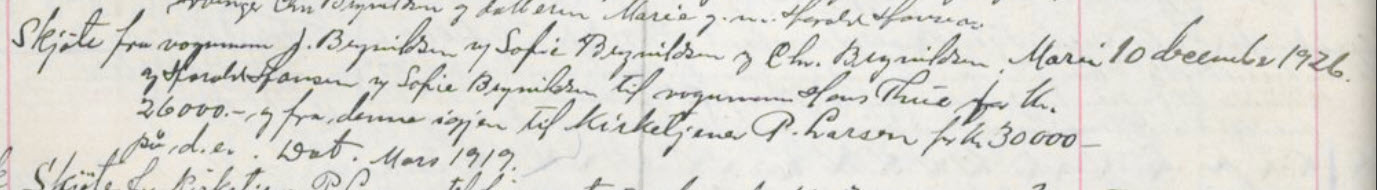 Chr. Brynildsen og datteren Marie g. m. Harald Hansen
Skjøte fra vognmann J. Brynildsen og Sofie Brynildsen og Chr. Brynildsen, Marie 10 december 1926.
og Harald Hansen og Sofie Brynildsen til vognmann Hans Thue for kr.
26000.- og fra denne igjen til Kirketjener P. Larsen for kr 30000-
på d. e. Dat. Mars 1919.
Skjøte fra Kirketj. P. Larsen til